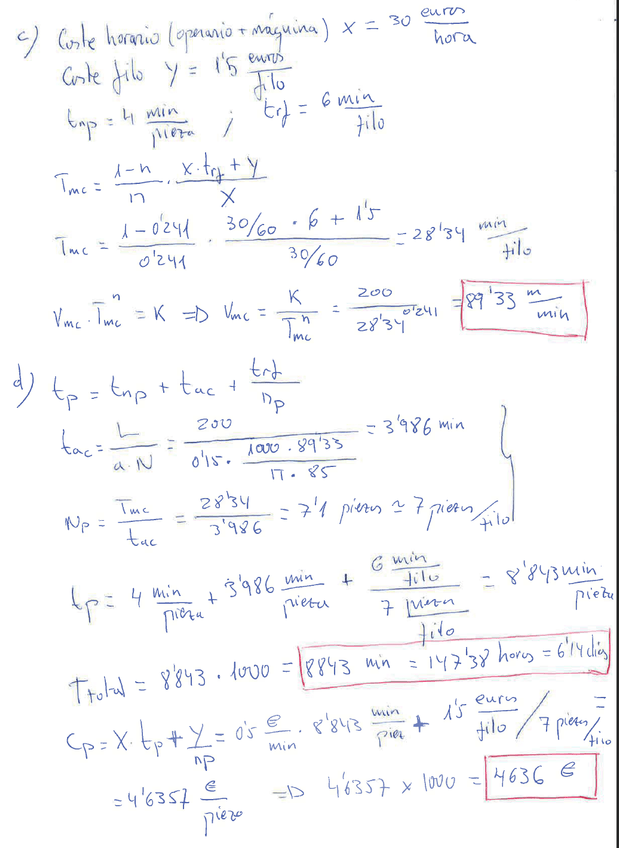 c) Coste horario (operario + máquina) X = 30 euros/hora
Coste filo Y = 1'5 euros/filo
tnp = 4 min/pieza ; trf = 6 min/filo
Tmc = (1-n)/n · (X·trf + Y)/X
Tmc = (1-0'241)/0'241 · (30/60 · 6 + 1'5)/(30/60) = 28'34 min/filo
Vmc · Tmc^n = K => Vmc = K/Tmc^n = 200/28'34^0'241 = 89'33 m/min
d) tp = tnp + tac + trf/np
tac = L/(a·N) = 200/(0'15 · (1000 · 89'33)/(π · 85)) = 3'986 min
Np = Tmc/tac = 28'34/3'986 = 7'1 piezas ≃ 7 piezas/filo
tp = 4 min/pieza + 3'986 min/pieza + (6 min/filo)/(7 piezas/filo) = 8'843 min/pieza
Ttotal = 8'843 · 1000 = 8843 min = 147'38 horas = 6'14 días
Cp = X · tp + Y/np = 0'5 €/min · 8'843 min/piez + 1'5 euros/filo / 7 piezas/filo =
= 4'6357 €/pieza => 4'6357 x 1000 = 4636 €